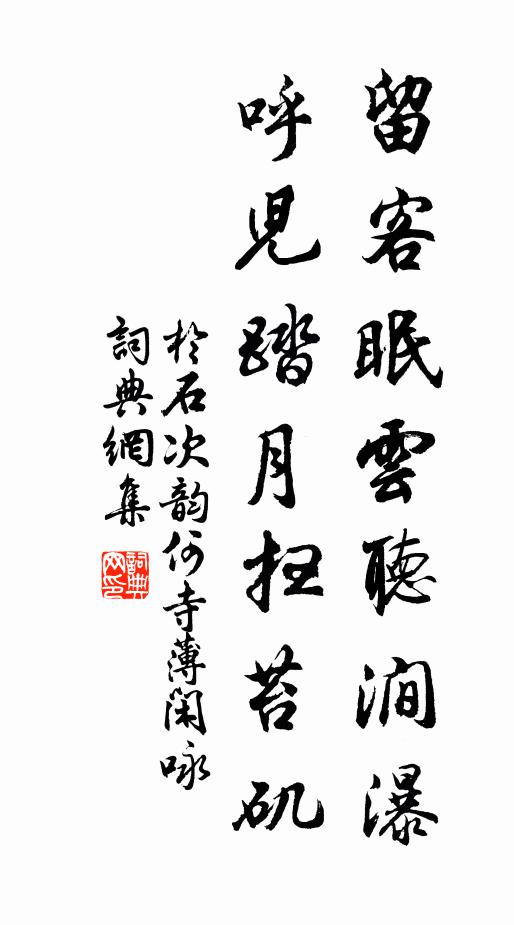 留客眠雲聽澗瀑
呼兒踏月扫苔矶
於石次韵何寺薄闲咏
詞典網集
詞典網印